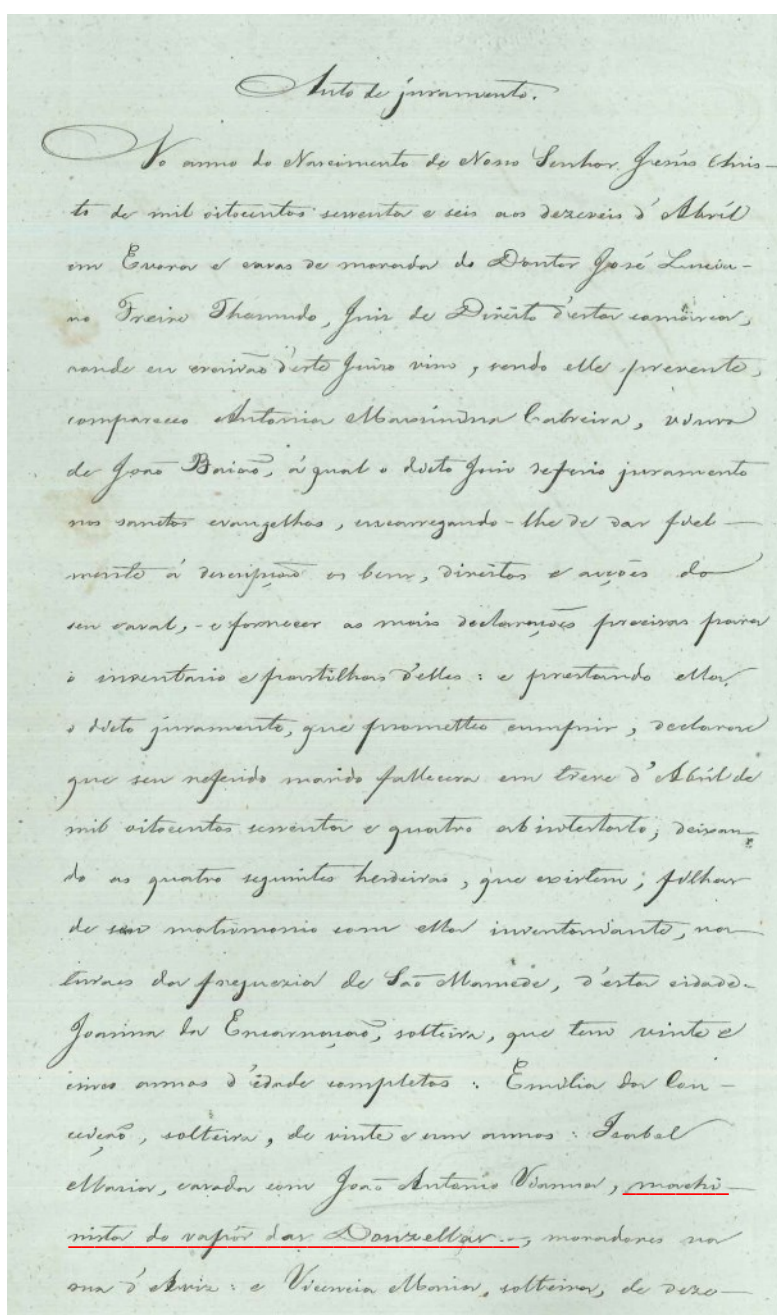 Auto de juramento.
No anno do Nascimento de Nosso Senhor Jesús Chris-
to de mil oitocentos sessenta e seis aos dezeseis d'Abríl
em Evora e casas de morada do Doutor José Lucia-
no Freire Themudo, Juiz de Direito d'esta comárca,
aonde eu escrivão d'este Juizo vim, sendo elle presente,
compareceo Antonia Maximina Cabreira, viuva
de João Baião, á qual o dicto Juiz deferio juramento
nos sanctos evangelhos, encarregando-lhe de dar fiel-
mente á descripção os bens, direitos e acções do
seu casal, e fornecer as mais declarações precisas para
o inventario e partilhas d'elles: e prestando ella
o dicto juramento, que prometteo cumprir, declarou
que seu referido marido fallecera em treze d'Abríl de
mil oitocentos sessenta e quatro abintestato; deixan-
do as quatro seguintes herdeiras, que existem; filhas
de seu matrimonio com ella inventariante, na-
turaes da freguezia de São Mamede, d'esta cidade.
Joanna da Encarnação, solteira, que tem vinte e
cinco annos d'edade completos: Emilia da Con-
ceição, solteira, de vinte e um annos: Isabel
Maria, casada com João Antonio Vianna, machi-
nista do vapôr das Donzellas, moradores na
rua d'Aviz: e Vicencia Maria, solteira, de deze-